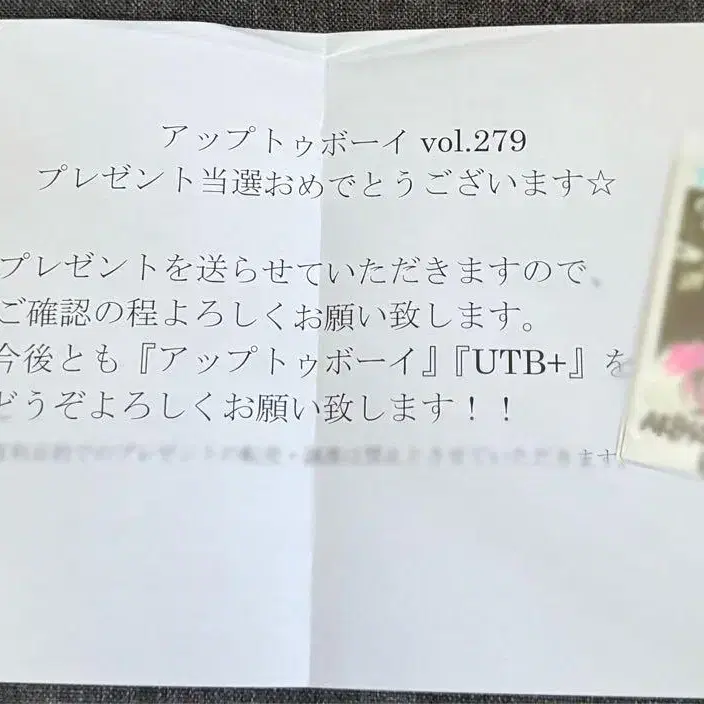 アップトゥボーイ vol.279
プレゼント当選おめでとうございます☆
プレゼントを送らせていただきますので、
ご確認の程よろしくお願い致します。
今後とも『アップトゥボーイ』『UTB+』を
どうぞよろしくお願い致します！！
ます。